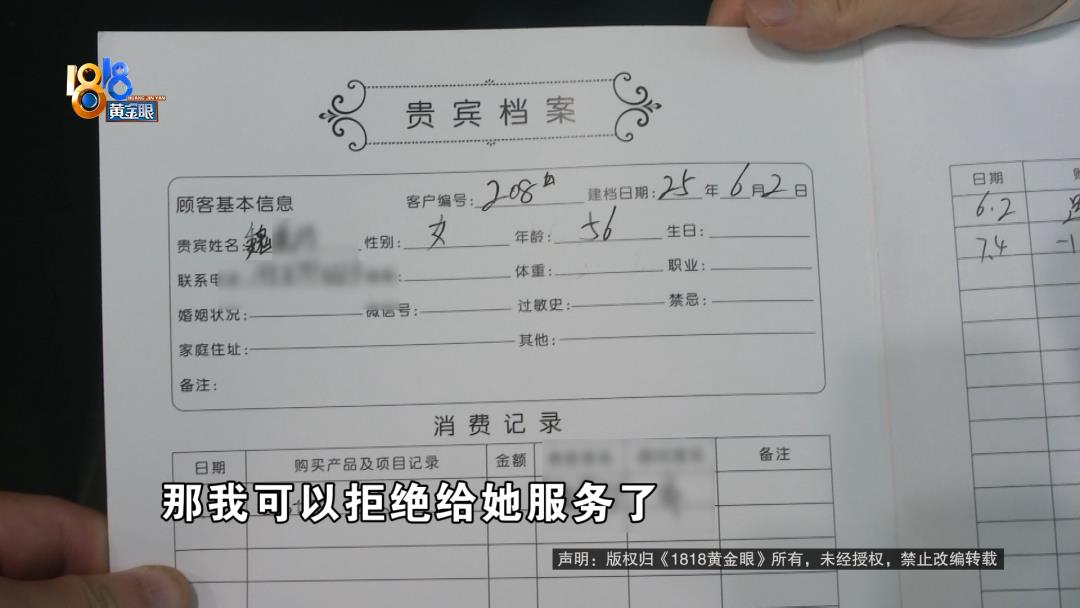 1818
HUANG JIN YAN
黄金眼
贵宾档案
顾客基本信息 客户编号: 208 建档日期: 25 年 6 月 2 日
贵宾姓名: 魏 性别: 女 年龄: 56 生日:
联系电 体重: 职业:
婚姻状况: 微信号: 过敏史: 禁忌:
家庭住址: 其他:
备注:
消费记录
日期 购买产品及项目记录 金额 备注
日期
6.2
7.4 -1
那我可以拒绝给她服务了
声明：版权归《1818黄金眼》所有，未经授权，禁止改编转载